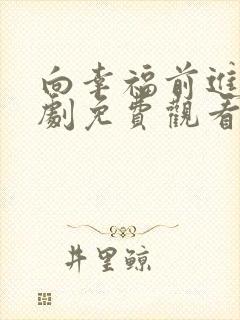 向幸福前進
劇免費觀看
井里鯨